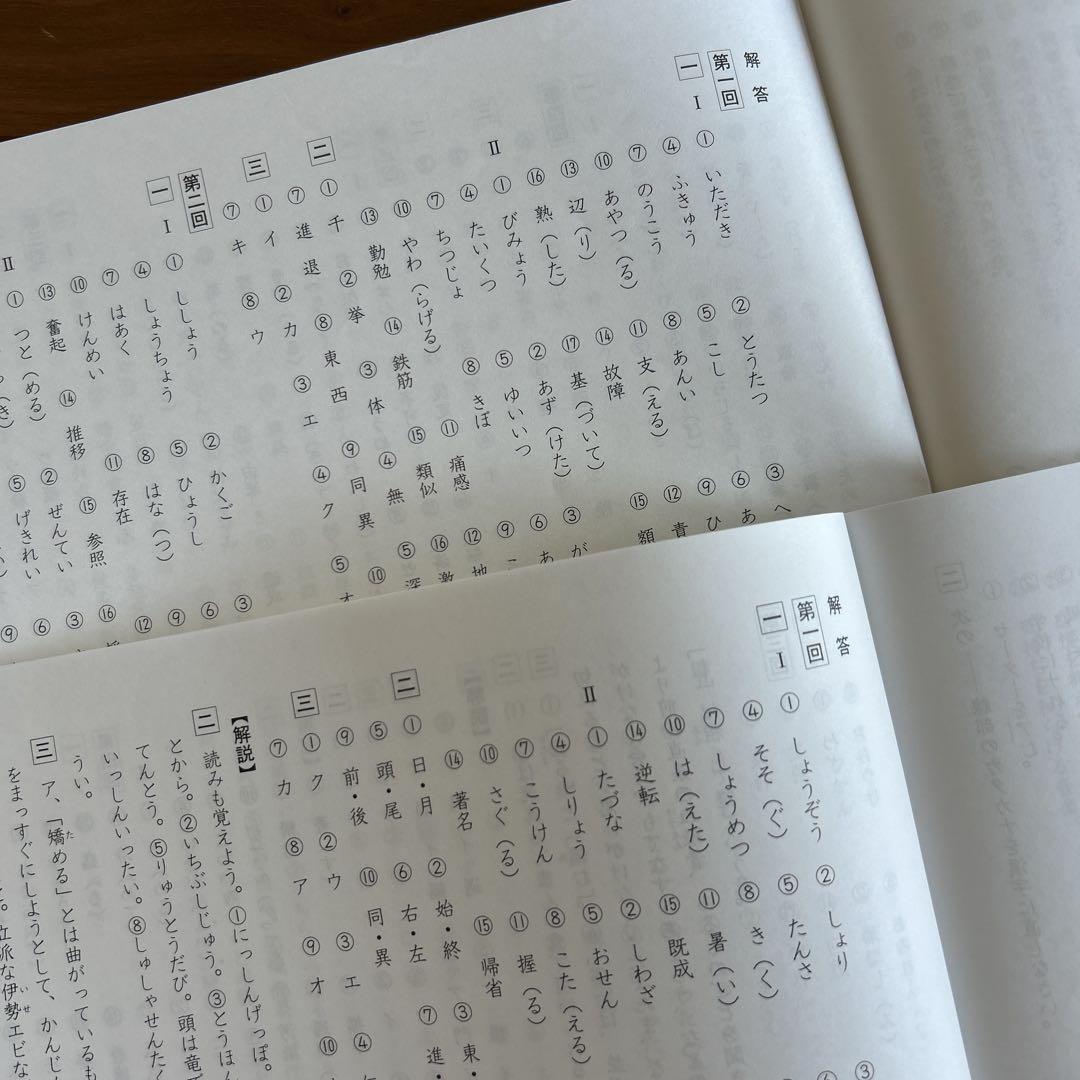 解答
第一回
一 Ⅰ
① いただき ② とうたつ ③ へ
④ ふきゅう ⑤ こし ⑥ あ
⑦ のうこう ⑧ あんい ⑨ ひ
⑩ あやつ（る） ⑪ 支（える） ⑫ 青
⑬ 辺（り） ⑭ 故障 ⑮ 額
⑯ 熟（した） ⑰ 基（づいて）
Ⅱ ① びみょう ② あず（けた） ③ が
④ たいくつ ⑤ ゆいいつ ⑥ あ
⑦ ちつじょ ⑧ きぼ ⑨ こ
⑩ やわ（らげる） ⑪ 痛感 ⑫ 地
⑬ 勤勉 ⑭ 鉄筋 ⑮ 類似 ⑯ 激
二 ① 千 ② 挙 ③ 体 ④ 無 ⑤ 深
⑦ 進退 ⑧ 東西 ⑨ 同異 ⑩
三 ① イ ② カ ③ エ ④ ク ⑤ オ
⑦ キ ⑧ ウ
第二回
一 Ⅰ
① ししょう ② かくご ③
④ しょうちょう ⑤ ひょうし ⑥
⑦ はあく ⑧ はな（つ） ⑨
⑩ けんめい ⑪ 存在 ⑫
⑬ 奮起 ⑭ 推移 ⑮ 参照 ⑯
Ⅱ ① つと（める） ② ぜんてい ③
⑤ げきれい ⑥
⑨
解答
第一回
一 Ⅰ
① しょうぞう ② しょり ③
④ そそ（ぐ） ⑤ たんさ ⑥
⑦ しょうめつ ⑧ き（く）
⑩ は（えた） ⑪ 暑（い）
⑭ 逆転 ⑮ 既成
Ⅱ ① たづな ② しわざ
④ しりょう ⑤ おせん
⑦ こうけん ⑧ こた（える）
⑩ さぐ（る） ⑪ 握（る）
⑭ 著名 ⑮ 帰省
二 ① 日・月 ② 始・終 ③ 東・
⑤ 頭・尾 ⑥ 右・左 ⑦ 進・
⑨ 前・後 ⑩ 同・異
三 ① ク ② ウ ③ エ ④
⑦ カ ⑧ ア ⑨ オ ⑩
【解説】
二 読みも覚えよう。①にっしんげっぽ。
とから。②いちぶしじゅう。③とうほん
てんとう。⑤りゅうとうだび。頭は竜
いっしんいったい。⑧しゅしゃせんたく
うい。
三 ア、「矯（た）める」とは曲がっているも
をまっすぐにしようとして、かんじん
立派な伊勢（いせ）エビな